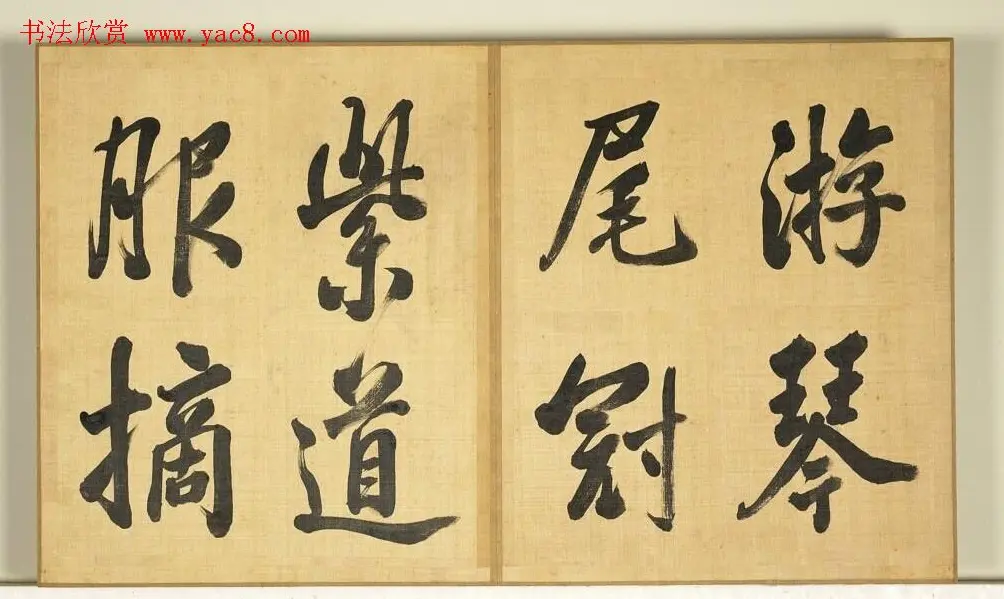 书法欣赏 www.yac8.com
游琴
尾冠
紫道
服摘